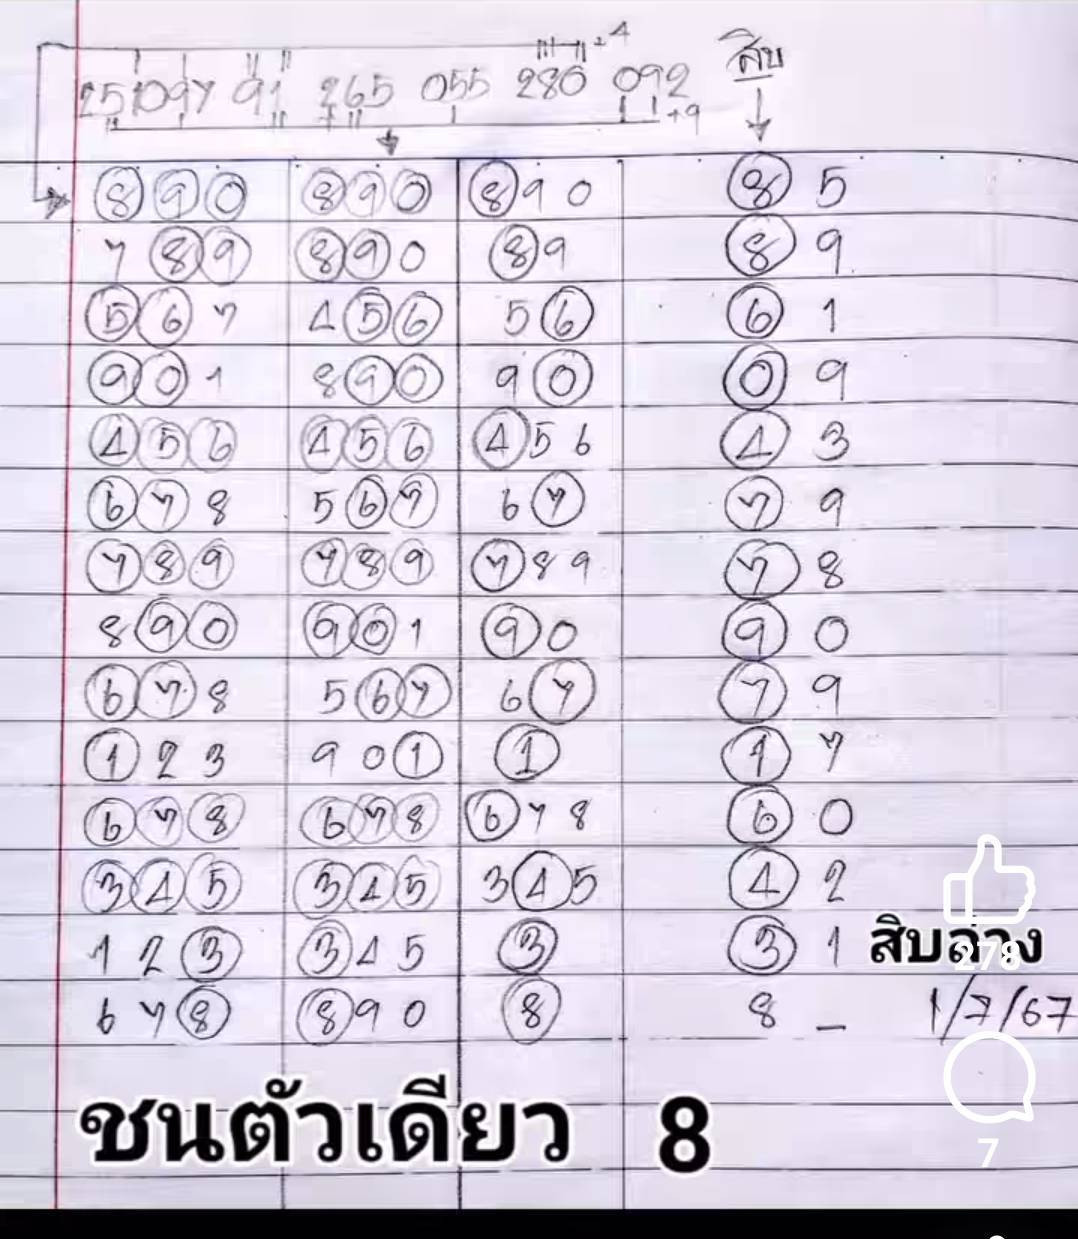 ÷4
251097 91 265 055 280 092 สิบ
+9
890 890 890 85
789 890 89 89
567 456 56 61
901 890 90 09
456 456 456 43
678 567 67 79
789 789 789 78
890 901 90 90
678 567 67 79
123 901 1 17
678 678 678 60
345 345 345 42
123 345 3 31 สิบล่าง
278
678 890 8 8 _ 1/7/67
ชนตัวเดียว 8
7